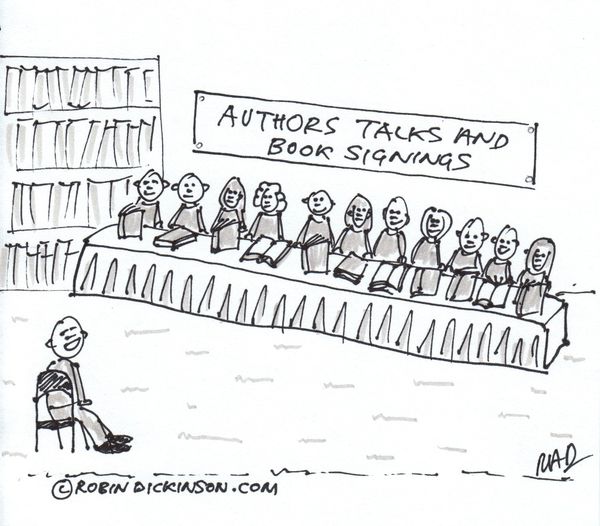 AUTHORS TALKS AND
BOOK SIGNINGS
MAD
©ROBINDICKINSON.COM